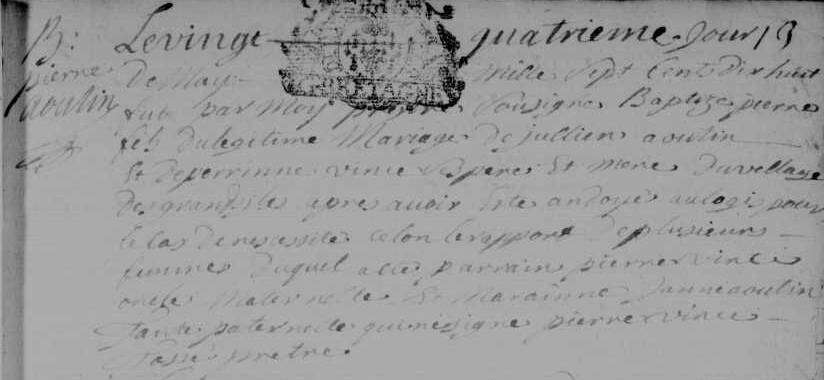 B: Le vingt quatrieme Jour
pierre De May mille Sept Cent dix huit
aoulin fut par Moy pretre Sousigne Baptize pierre
fils du legitime Mariage de jullien aoulin
Et de perrinne vince ses pere Et mere du vellage
des grands apres avoir Este andoye au logis pour
le cas de nesessite celon le rapport de plusieurs
femmes duquel a este parrain pierre vince
oncle maternelle Et Marainne Janne aoulin
Tante paternelle qui ne signe pierre vince
pretre